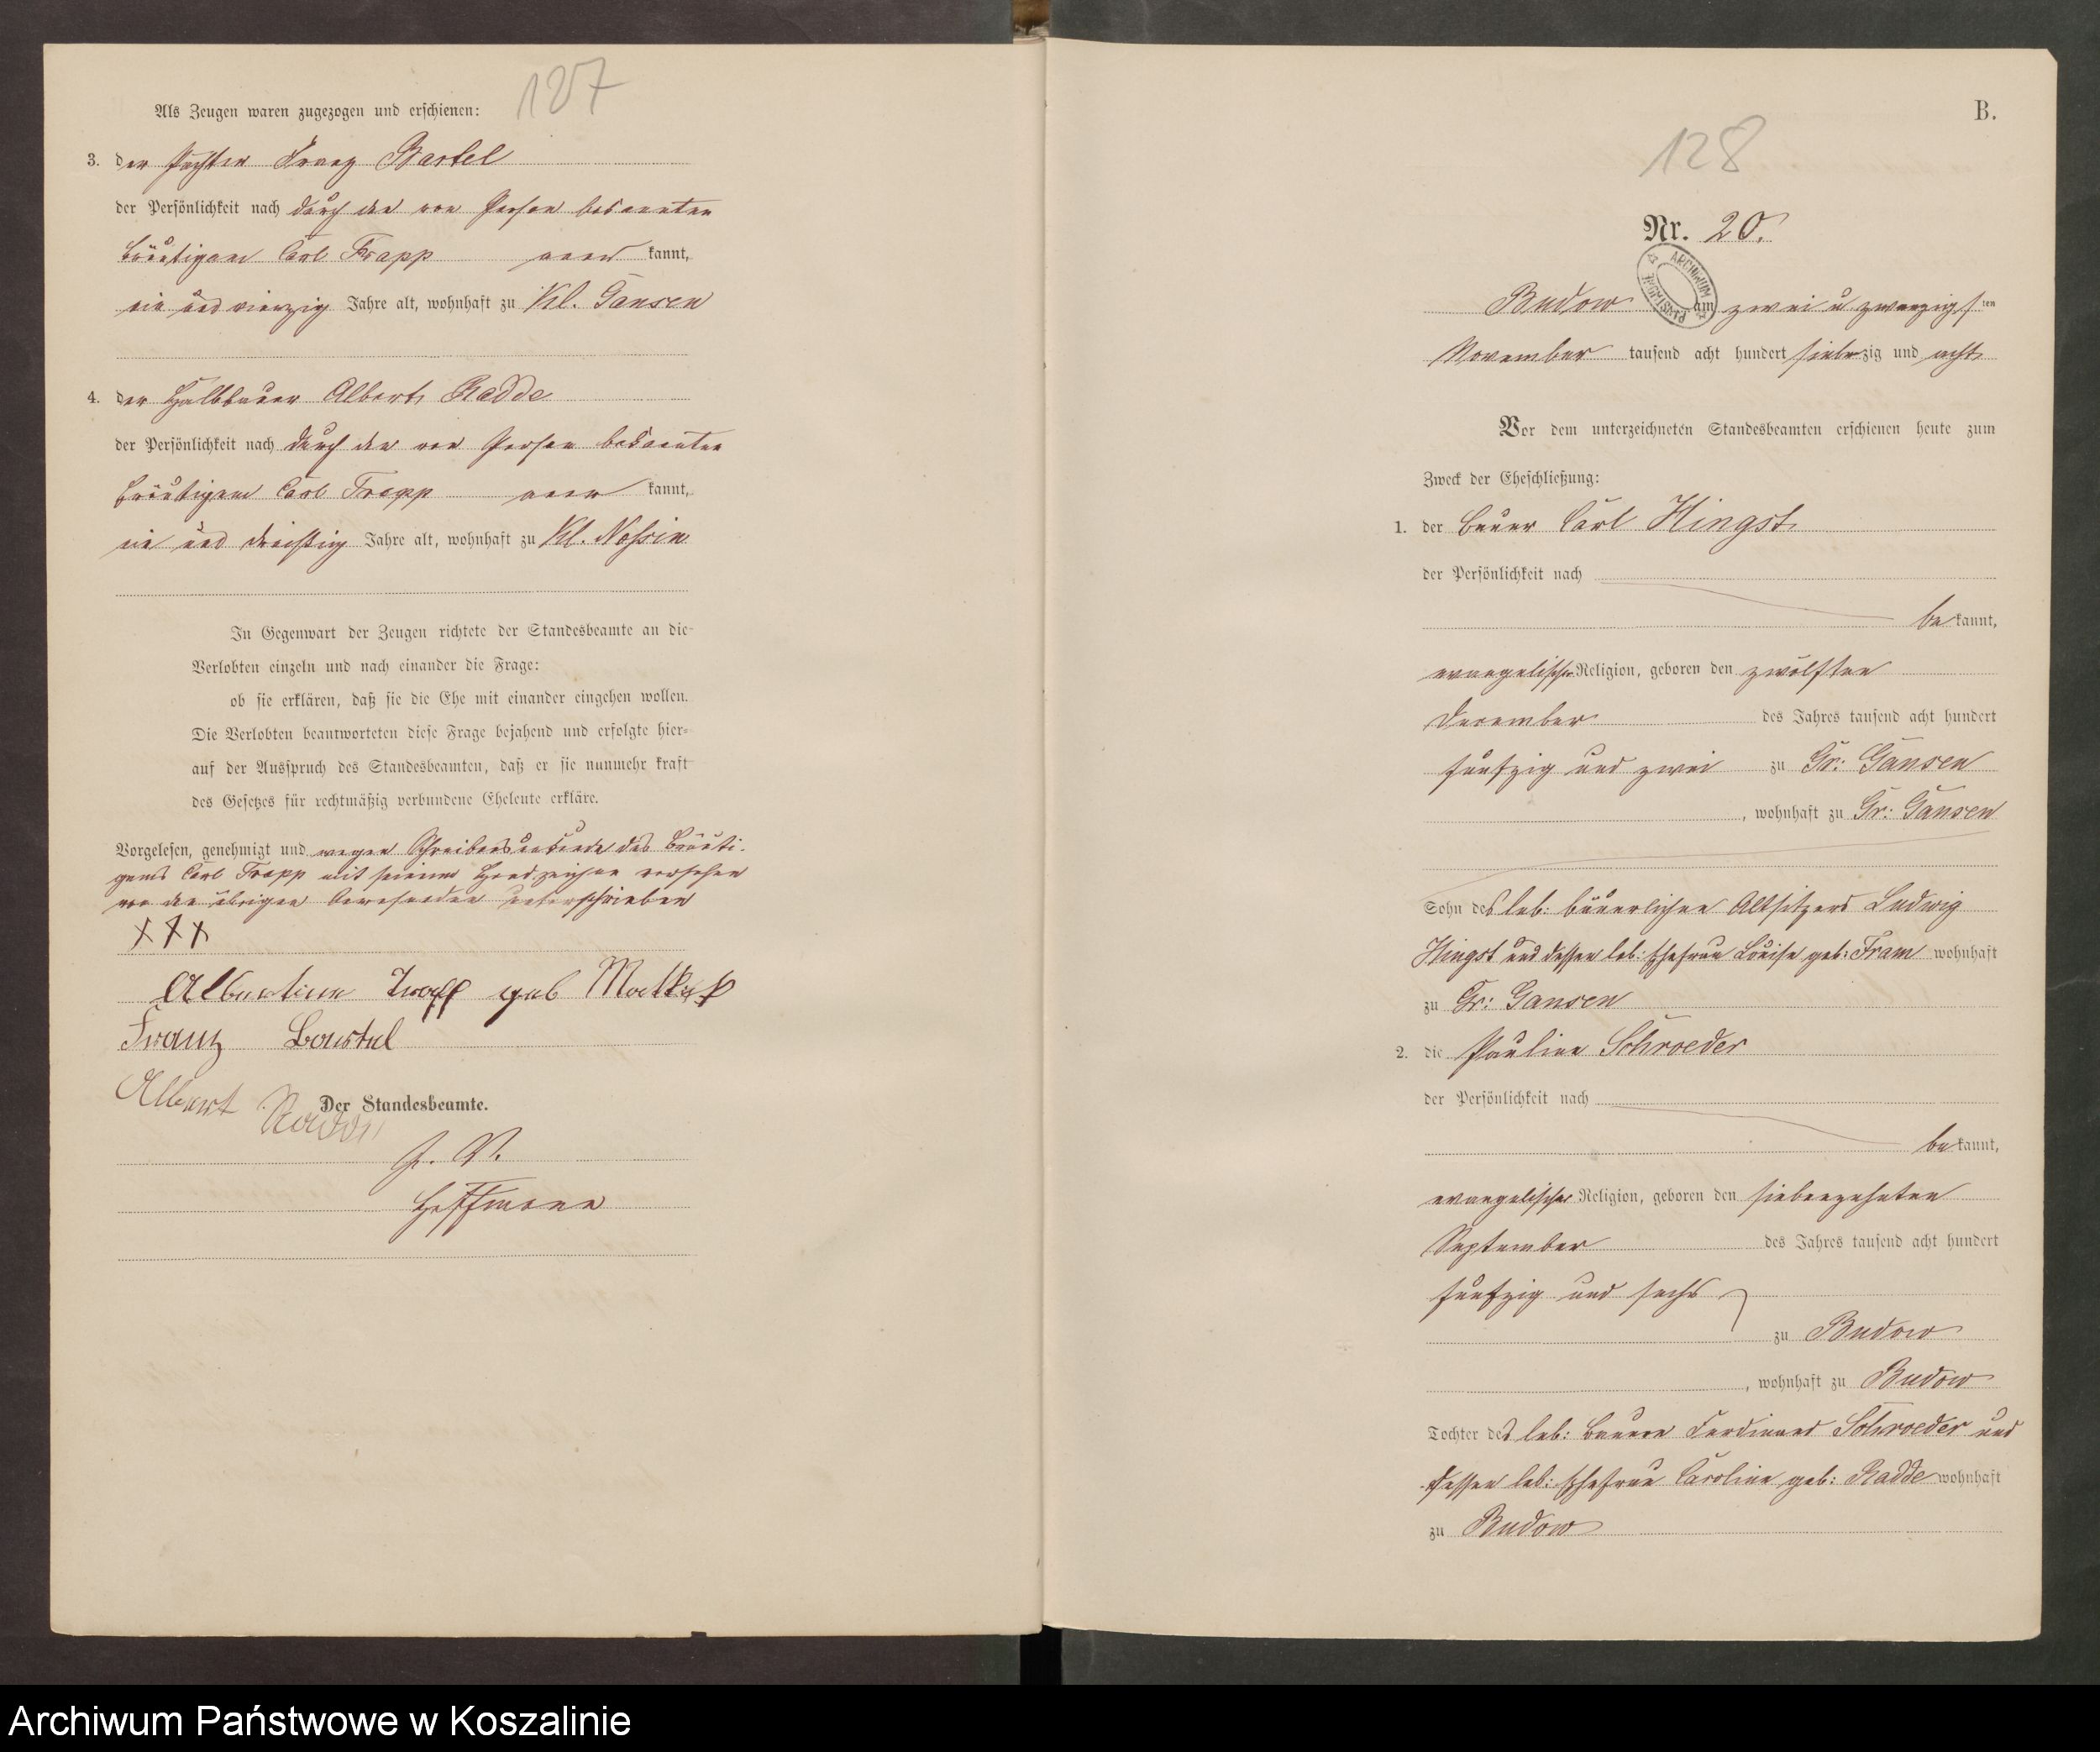 127
Als Zeugen waren zugezogen und erschienen:
3. der Pächter Franz Bartel
der Persönlichkeit nach durch den von Person bekannten
Bräutigam Carl Trapp aner kannt,
ein und vierzig Jahre alt, wohnhaft zu Kl. Gansen
4. der Halbbauer Albert Radde
der Persönlichkeit nach durch den von Person bekannten
Bräutigam Carl Trapp aner kannt,
ein und dreißig Jahre alt, wohnhaft zu Kl. Nossin
In Gegenwart der Zeugen richtete der Standesbeamte an die
Verlobten einzeln und nach einander die Frage:
ob sie erklären, daß sie die Ehe mit einander eingehen wollen.
Die Verlobten beantworteten diese Frage bejahend und erfolgte hier-
auf der Ausspruch des Standesbeamten, daß er sie nunmehr kraft
des Gesetzes für rechtmäßig verbundene Eheleute erkläre.
Vorgelesen, genehmigt und wegen Schreibensunkunde des Bräuti-
gams Carl Trapp mit seinem Handzeichen versehen
von den übrigen Anwesenden unterschrieben
XXX
Albertine Trapp geb
Franz Bartel
Albert Radde
Der Standesbeamte.
J. V.
Hoffmann
B.
128
Nr. 20.
Budow am zwei u zwanzigsten
November tausend acht hundert siebenzig und acht
Vor dem unterzeichneten Standesbeamten erschienen heute zum
Zweck der Eheschließung:
1. der Bauer Carl Hingst
der Persönlichkeit nach
be kannt,
evangelischer Religion, geboren den zwölften
December des Jahres tausend acht hundert
fünfzig und zwei zu Gr: Gansen
, wohnhaft zu Gr: Gansen
Sohn des leb: bäuerlichen Altsitzers Ludwig
Hingst und dessen leb: Ehefrau Louise geb: Fram wohnhaft
zu Gr: Gansen
2. die Pauline Schroeder
der Persönlichkeit nach
be kannt,
evangelischer Religion, geboren den siebenzehnten
September des Jahres tausend acht hundert
fünfzig und sechs
zu Budow
, wohnhaft zu Budow
Tochter des leb: Bauern Ferdinand Schroeder und
dessen leb: Ehefrau Caroline geb: Radde wohnhaft
zu Budow
Archiwum Państwowe w Koszalinie